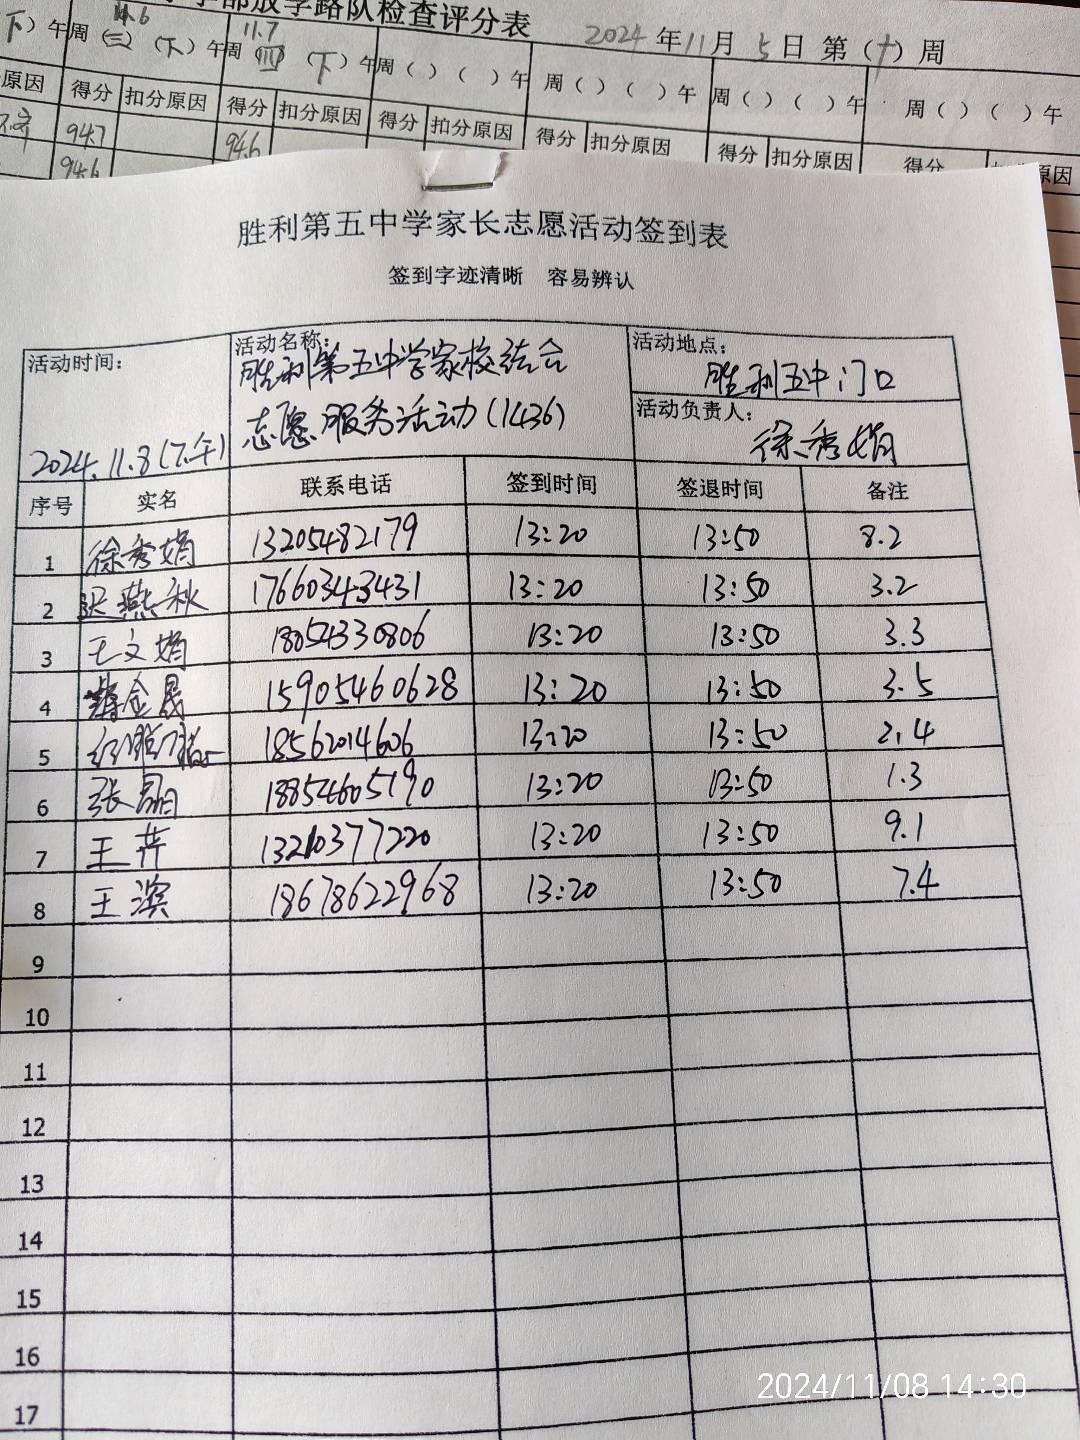 部放学路队检查评分表 2024年11月5日 第(十)周
下)午 11.6 周(三)(下)午 11.7 周(四)(下)午 周( )( )午 周( )( )午 周( )( )午 周( )( )午
原因 得分 扣分原因 得分 扣分原因 得分 扣分原因 得分 扣分原因 得分 扣分原因 得分 原因
94.7 94.6
94.6
胜利第五中学家长志愿活动签到表
签到字迹清晰 容易辨认
活动时间: 活动名称: 活动地点:
胜利第五中学家校结合 胜利五中门口
志愿服务活动(1436) 活动负责人:
2024.11.8(下午) 徐秀娟
序号 实名 联系电话 签到时间 签退时间 备注
1 徐秀娟 13205482179 13:20 13:50 8.2
2 燕秋 17660343431 13:20 13:50 3.2
3 王文娟 18054330806 13:20 13:50 3.3
4 金晟 15905460628 13:20 13:50 3.5
5 18562014606 13:20 13:50 2.4
6 张晶 18854605190 13:20 13:50 1.3
7 王芹 13210377220 13:20 13:50 9.1
8 王滨 18678622968 13:20 13:50 7.4
9
10
11
12
13
14
15
16
17
2024/11/08 14:30